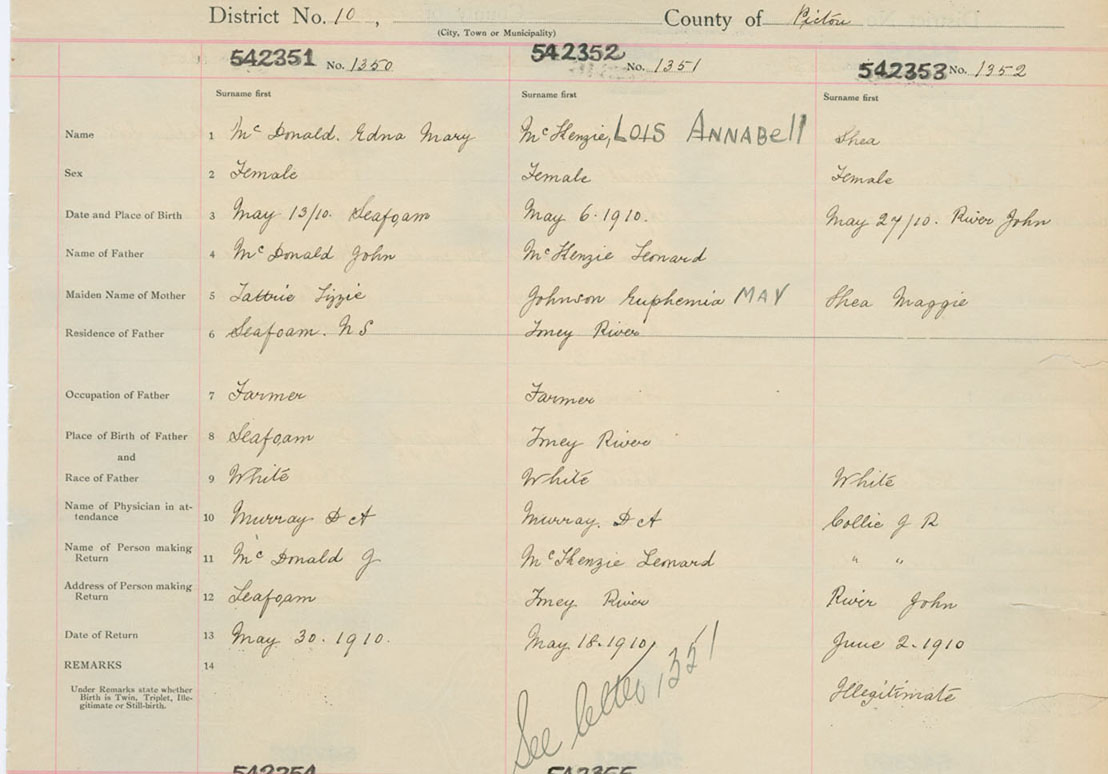 District No. 10, County of Pictou
(City, Town or Municipality)
542351 No. 1350 542352 No. 1351 542353 No. 1352
Surname first Surname first Surname first
Name 1 McDonald. Edna Mary McKenzie, LOIS ANNABEll Shea
Sex 2 Female Female Female
Date and Place of Birth 3 May 13/10. Seafoam May 6. 1910. May 27/10. River John
Name of Father 4 McDonald John McKenzie Leonard
Maiden Name of Mother 5 Tattrie Lizzie Johnson Euphemia MAY Shea Maggie
Residence of Father 6 Seafoam. NS Toney River
Occupation of Father 7 Farmer Farmer
Place of Birth of Father 8 Seafoam Toney River
and
Race of Father 9 White White White
Name of Physician in at-
tendance 10 Murray D A Murray. D A Collie J R
Name of Person making
Return 11 McDonald J McKenzie Leonard " "
Address of Person making
Return 12 Seafoam Toney River River John
Date of Return 13 May 30. 1910. May 18. 1910 June 2. 1910
REMARKS 14
Under Remarks state whether
Birth is Twin, Triplet, Ille-
gitimate or Still-birth.
Illegitimate
See letter 1351